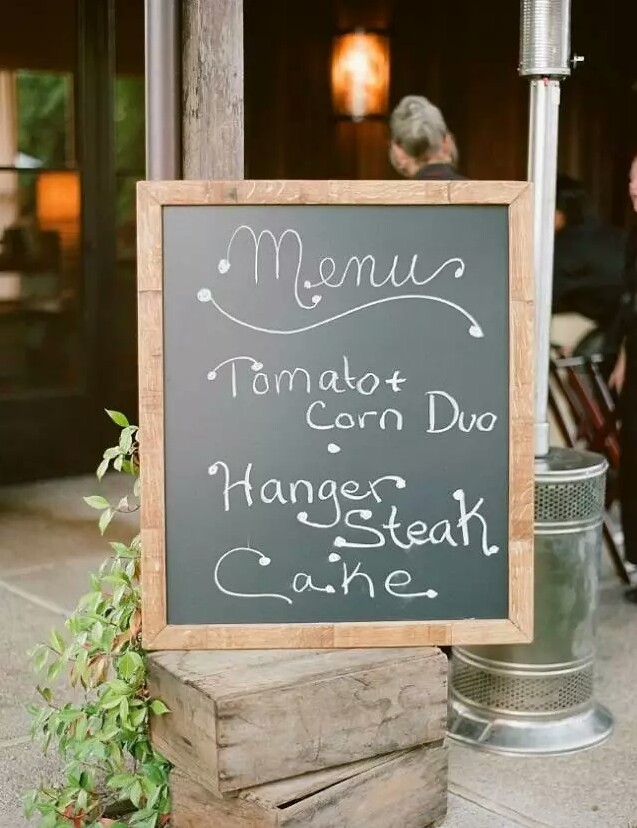 Menu
Tomato +
Corn Duo
Hanger
Steak
Cake